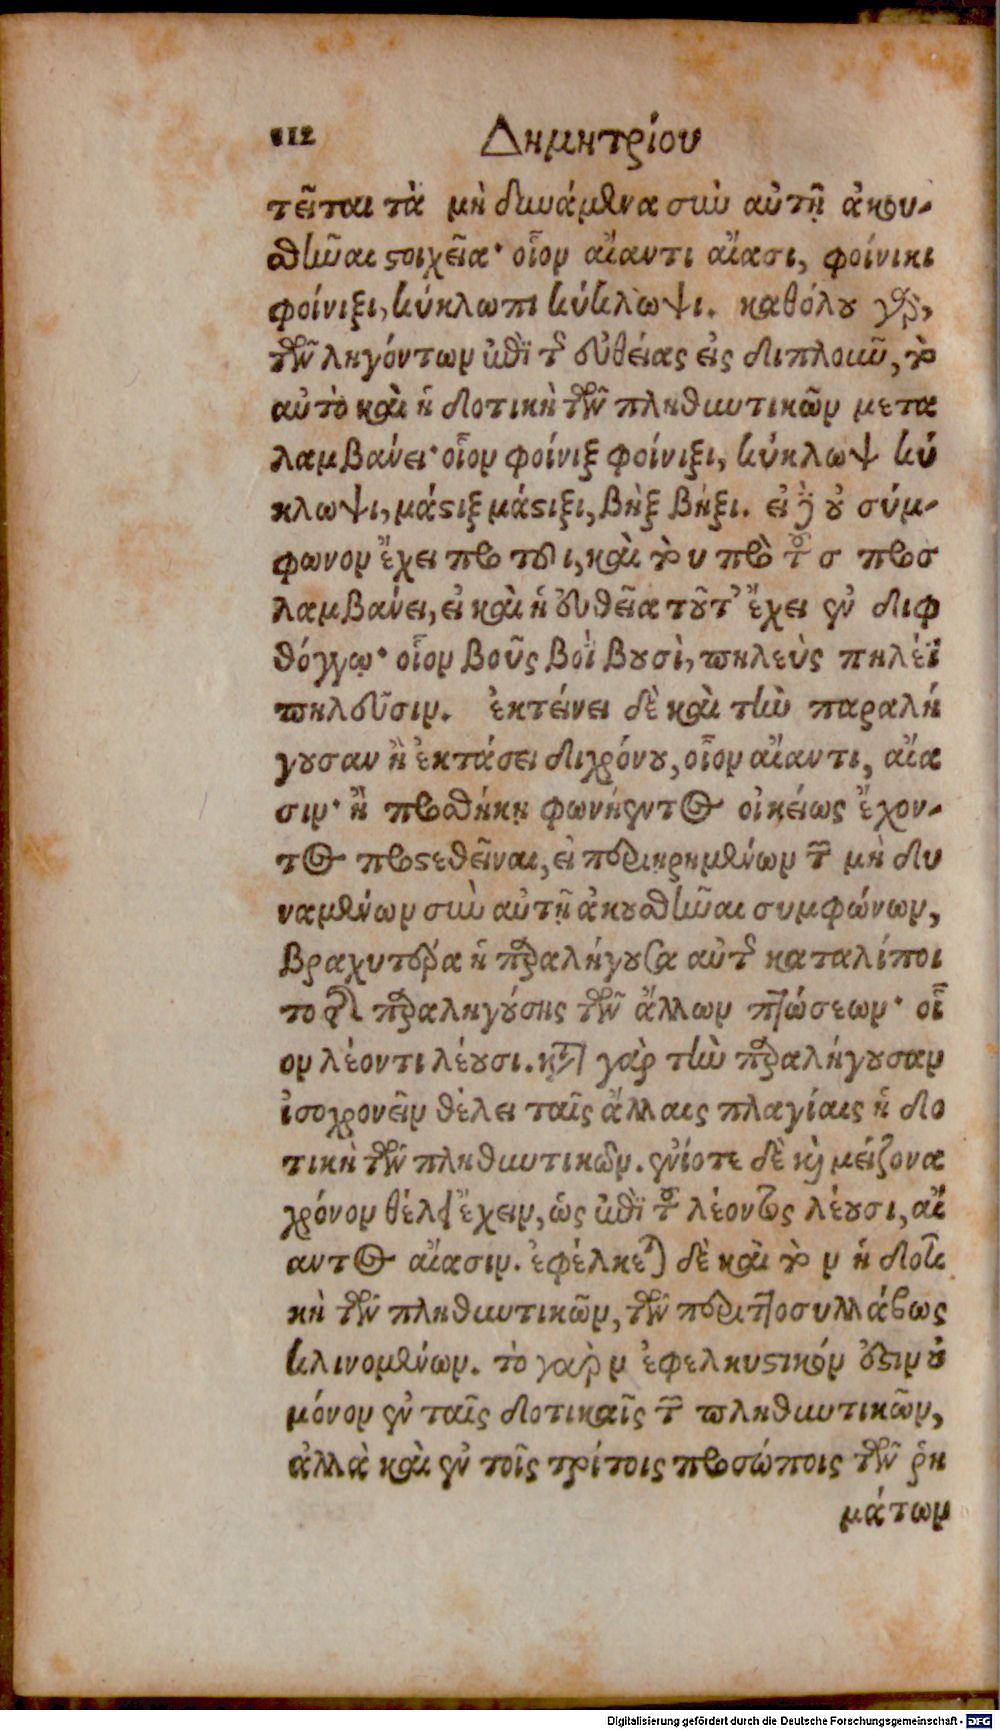 112 Δημητρίου
τεῖται τὰ μὴ δυνάμενα σὺν αὐτῇ ἀκου-
σθῆναι στοιχεῖα· οἷον αἴαντι αἴασι, φοίνικι
φοίνιξι, κύκλωπι κύκλωψι. καθόλου γὰρ,
τῶν ληγόντων ἐπὶ τῆς εὐθείας εἰς διπλοῦν, τὸ
αὐτὸ καὶ ἡ δοτικὴ τῶν πληθυντικῶν μετα
λαμβάνει· οἷον φοίνιξ φοίνιξι, κύκλωψ κύ
κλωψι, μάστιξ μάστιξι, βὴξ βήξι. εἰ δὲ οὐ σύμ-
φωνον ἔχει πρὸ τοῦ ι, καὶ τὸ υ πρὸ τοῦ σ προσ
λαμβάνει, εἰ καὶ ἡ εὐθεῖα τοῦτ' ἔχει ἐν διφ
θόγγῳ· οἷον βοῦς βοῒ βουσὶ, πηλεὺς πηλέϊ
πηλεῦσιν. ἐκτείνει δὲ καὶ τὴν παραλή
γουσαν ἢ ἐκτάσει διχρόνου, οἷον αἴαντι, αἴα
σιν· ἢ προσθήκῃ φωνήεντος οἰκείως ἔχον-
τος προστεθεῖναι, εἰ περιῃρημένων τῶν μὴ δυ
ναμένων σὺν αὐτῇ ἀκουσθῆναι συμφώνων,
βραχυτέρα ἡ παραλήγουσα αὐτῆς καταλίποι
το τῆς παραληγούσης τῶν ἄλλων πτώσεων· οἷ
ον λέοντι λέουσι. κατὰ γὰρ τὴν παραλήγουσαν
ἰσοχρονεῖν θέλει ταῖς ἄλλαις πλαγίαις ἡ δο
τικὴ τῶν πληθυντικῶν. ἐνίοτε δὲ καὶ μείζονα
χρόνον θέλει ἔχειν, ὡς ἐπὶ τοῦ λέοντος λέουσι, αἴ
αντος αἴασιν. ἐφέλκεται δὲ καὶ τὸ ν ἡ δοτι
κὴ τῶν πληθυντικῶν, τῶν περιττοσυλλάβως
κλινομένων. τὸ γὰρ ν ἐφελκυστικόν ἐστιν οὐ
μόνον ἐν ταῖς δοτικαῖς τῶν πληθυντικῶν,
ἀλλὰ καὶ ἐν τοῖς τρίτοις προσώποις τῶν ῥη
μάτων
Digitalisierung gefördert durch die Deutsche Forschungsgemeinschaft - DFG